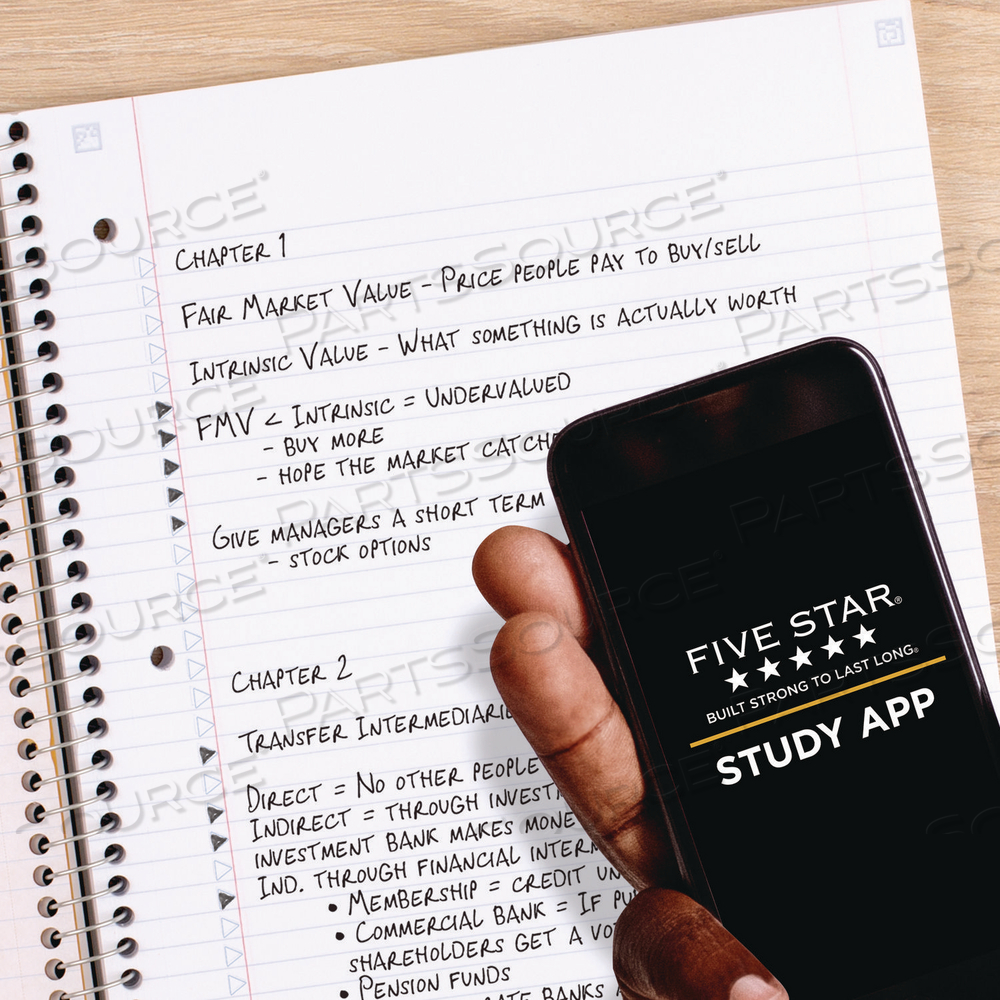 CHAPTER 1
FAIR MARKET VALUE - PRICE PEOPLE PAY TO BUY/SELL
INTRINSIC VALUE - WHAT SOMETHING IS ACTUALLY WORTH
FMV < INTRINSIC = UNDERVALUED
- BUY MORE
- HOPE THE MARKET CATCHE
GIVE MANAGERS A SHORT TERM
- STOCK OPTIONS
CHAPTER 2
TRANSFER INTERMEDIARI
DIRECT = NO OTHER PEOPLE
INDIRECT = THROUGH INVEST
INVESTMENT BANK MAKES MONE
IND. THROUGH FINANCIAL INTERM
• MEMBERSHIP = CREDIT UN
• COMMERCIAL BANK = IF PU
SHAREHOLDERS GET A VO
• PENSION FUNDS
BANKS
FIVE STAR®
★★★★★
BUILT STRONG TO LAST LONG®
STUDY APP
PARTSSOURCE®